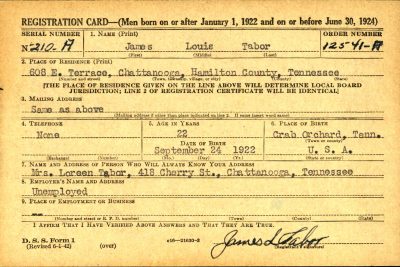 REGISTRATION CARD—(Men born on or after January 1, 1922 and on or before June 30, 1924)
SERIAL NUMBER 1. NAME (Print) ORDER NUMBER
N 210-A James Louis Tabor 12541-A
(First) (Middle) (Last)
2. PLACE OF RESIDENCE (Print)
608 E. Terrace, Chattanooga, Hamilton County, Tennessee
(Number and street) (Town, township, village, or city) (County) (State)
[THE PLACE OF RESIDENCE GIVEN ON THE LINE ABOVE WILL DETERMINE LOCAL BOARD
JURISDICTION; LINE 2 OF REGISTRATION CERTIFICATE WILL BE IDENTICAL]
3. MAILING ADDRESS
Same as above
(Mailing address if other than place indicated on line 2. If same insert word same)
4. TELEPHONE 5. AGE IN YEARS 6. PLACE OF BIRTH
None 22 Crab Orchard, Tenn.
DATE OF BIRTH (Town or county)
September 24 1922 U. S. A.
(Exchange) (Number) (Mo.) (Day) (Yr.) (State or country)
7. NAME AND ADDRESS OF PERSON WHO WILL ALWAYS KNOW YOUR ADDRESS
Mrs. Loreen Tabor, 418 Cherry St., Chattanooga, Tennessee
8. EMPLOYER'S NAME AND ADDRESS
Unemployed
9. PLACE OF EMPLOYMENT OR BUSINESS
(Number and street or R. F. D. number) (Town) (County) (State)
I AFFIRM THAT I HAVE VERIFIED ABOVE ANSWERS AND THAT THEY ARE TRUE.
D. S. S. Form 1 (over) 16—21630-2 James L Tabor
(Revised 6-1-42) (Registrant's signature)